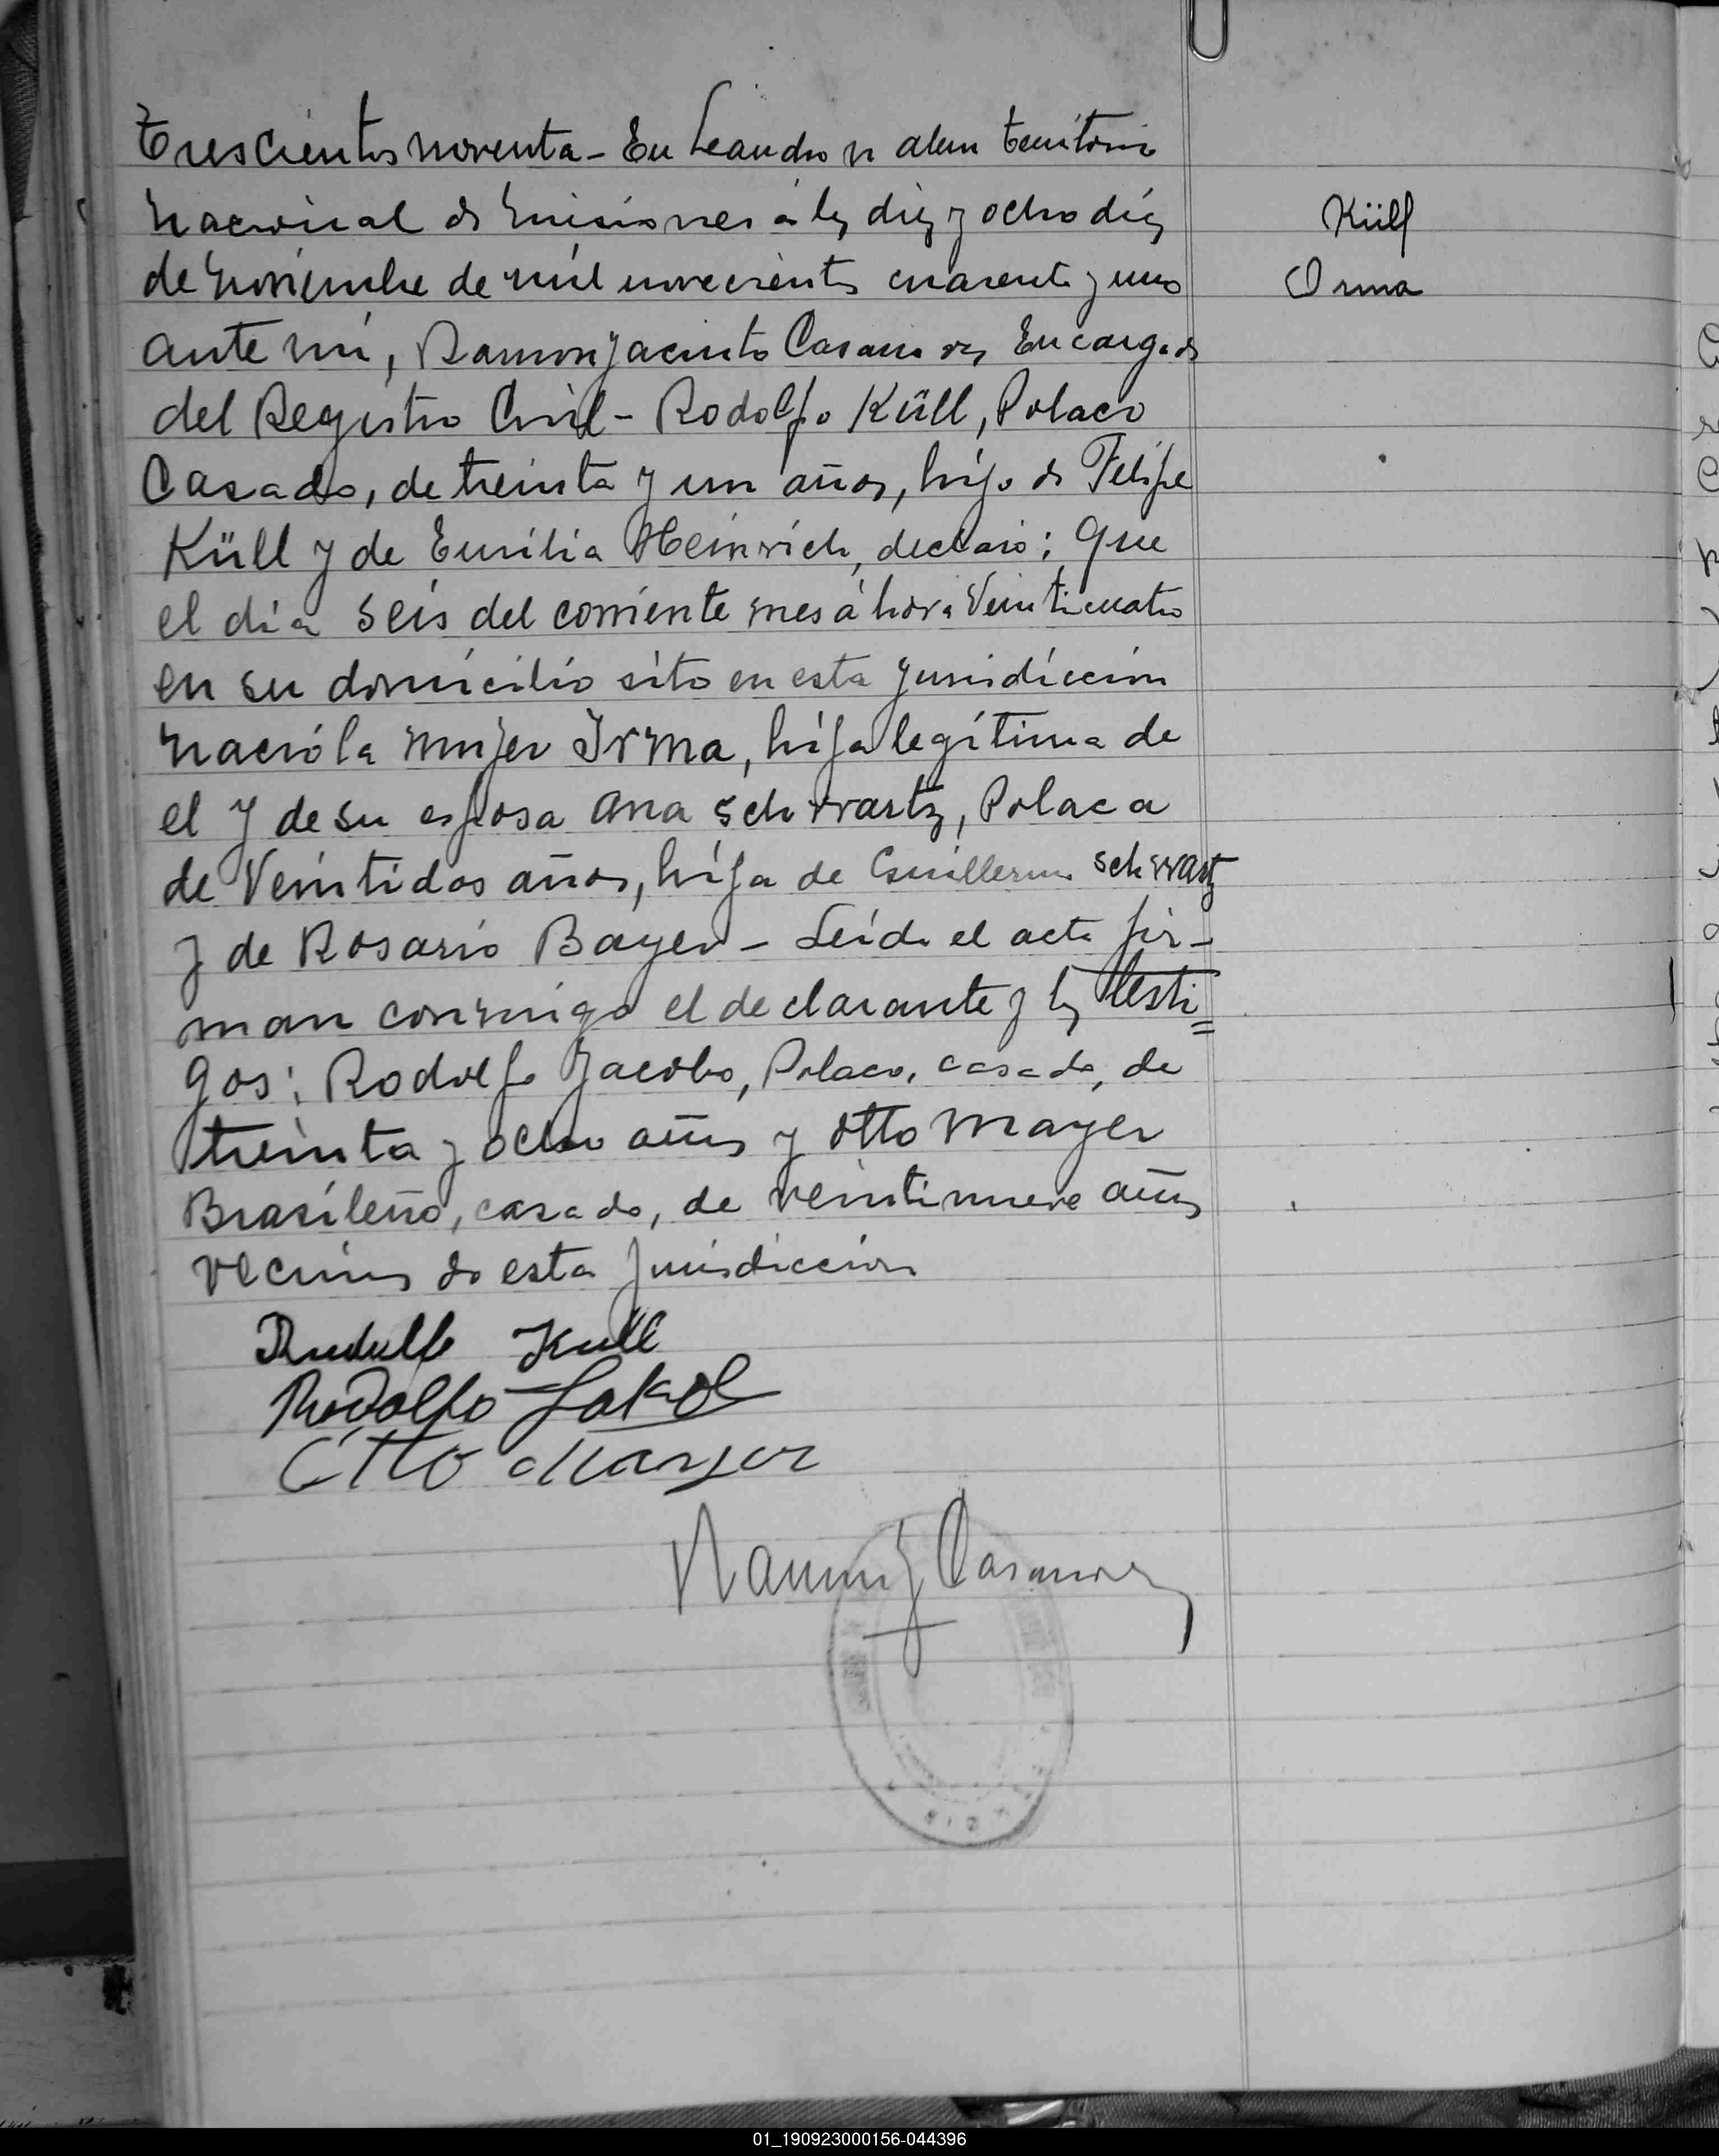 Trescientos noventa - En Leandro N Alem territorio
Nacional de Misiones á los diez y ocho días
de Noviembre de mil novecientos cuarenta y uno
ante mí, Ramon Jacinto Casanova, Encargado
del Registro Civil - Rodolfo Küll, Polaco
Casado, de treinta y un años, hijo de Felipe
Küll y de Emilia Heinrich, declaró: Que
el día seis del corriente mes á hora Veinticuatro
en su domicilio sito en esta Jurisdicción
nació la mujer Irma, hija legítima de
el y de su esposa Ana Schwartz, Polaca
de Veintidos años, hija de Guillermo Schwartz
y de Rosario Bayer - Leída el acta fir-
man conmigo el declarante y los testi=
gos: Rodolfo Jacobo, Polaco, casado, de
treinta y ocho años y Otto Mayer
Brasileño, casado, de veintinueve años
vecinos de esta Jurisdicción
Küll
Irma
Rudolfo Kull
Rodolfo Jakob
Otto Mayer
Ramon J Casanova
01_190923000156-044396